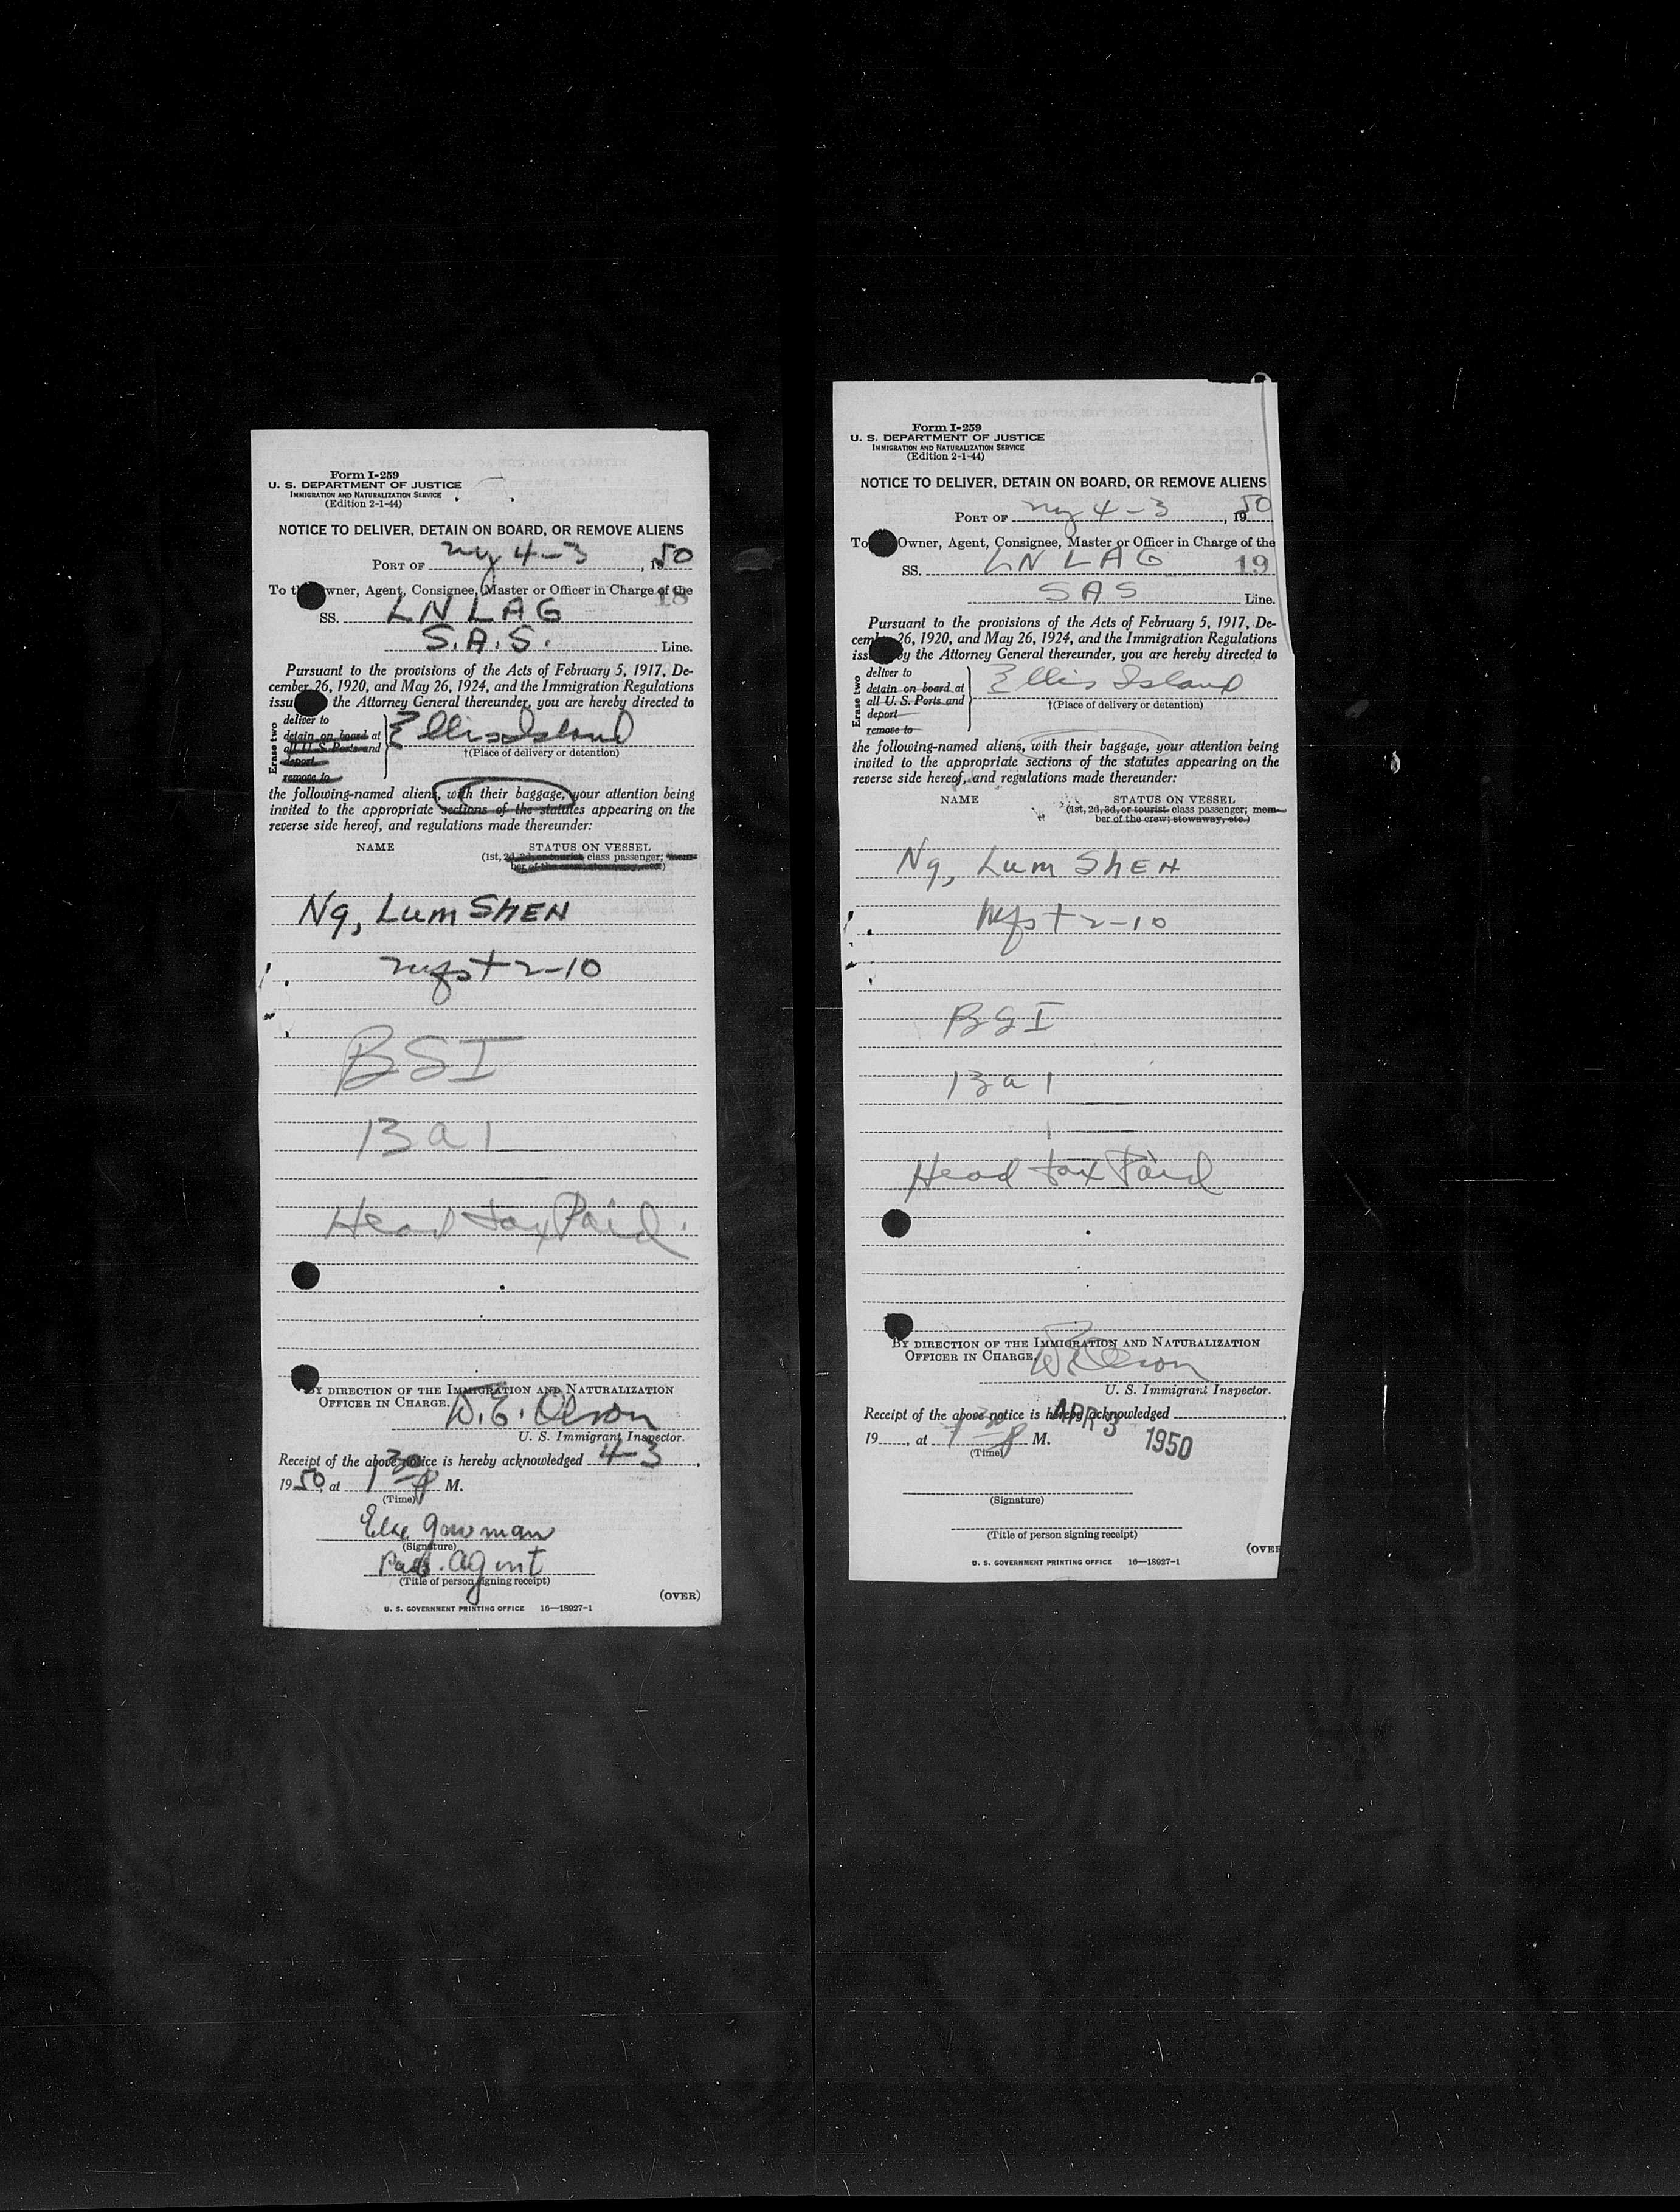 Form I-259
U. S. DEPARTMENT OF JUSTICE
IMMIGRATION AND NATURALIZATION SERVICE
(Edition 2-1-44)
NOTICE TO DELIVER, DETAIN ON BOARD, OR REMOVE ALIENS
PORT OF ny 4-3, 1950
To th wner, Agent, Consignee, Master or Officer in Charge of the
18
SS. LN LAG
S.A.S. Line.
Pursuant to the provisions of the Acts of February 5, 1917, De-
cember 26, 1920, and May 26, 1924, and the Immigration Regulations
issu the Attorney General thereunder, you are hereby directed to
Erase two
deliver to
detain on board at
all U. S. Ports and
deport
remove to
Ellis Island
†(Place of delivery or detention)
the following-named aliens, with their baggage, your attention being
invited to the appropriate sections of the statutes appearing on the
reverse side hereof, and regulations made thereunder:
NAME STATUS ON VESSEL
(1st, 2d, 3d, or tourist class passenger; mem-
ber of the crew; stowaway, etc.)
Ng, Lum SHEN
mfst 2-10
BSI
13 a 1
Head tax Paid.
BY DIRECTION OF THE IMMIGRATION AND NATURALIZATION
OFFICER IN CHARGE. D. E. Olson
U. S. Immigrant Inspector.
Receipt of the above notice is hereby acknowledged 4-3,
1950, at 1 30 P M.
(Time)
(Signature)
Agent
(Title of person signing receipt)
(OVER)
U. S. GOVERNMENT PRINTING OFFICE 16—18927-1
Form I-259
U. S. DEPARTMENT OF JUSTICE
IMMIGRATION AND NATURALIZATION SERVICE
(Edition 2-1-44)
NOTICE TO DELIVER, DETAIN ON BOARD, OR REMOVE ALIENS
PORT OF ny 4-3, 1950
To Owner, Agent, Consignee, Master or Officer in Charge of the
SS. LN LAG 19
SAS Line.
Pursuant to the provisions of the Acts of February 5, 1917, De-
cember 26, 1920, and May 26, 1924, and the Immigration Regulations
iss by the Attorney General thereunder, you are hereby directed to
Erase two
deliver to
detain on board at
all U. S. Ports and
deport
remove to
Ellis Island
†(Place of delivery or detention)
the following-named aliens, with their baggage, your attention being
invited to the appropriate sections of the statutes appearing on the
reverse side hereof, and regulations made thereunder:
NAME STATUS ON VESSEL
(1st, 2d, 3d, or tourist class passenger; mem-
ber of the crew; stowaway, etc.)
Ng, Lum SHEN
Mfst 2-10
BSI
13 a 1
Head tax Paid
BY DIRECTION OF THE IMMIGRATION AND NATURALIZATION
OFFICER IN CHARGE. D. E. Olson
U. S. Immigrant Inspector.
Receipt of the above notice is hereby acknowledged APR 3 1950,
19, at 1 30 P M.
(Time)
(Signature)
(Title of person signing receipt)
(OVER
U. S. GOVERNMENT PRINTING OFFICE 16—18927-1